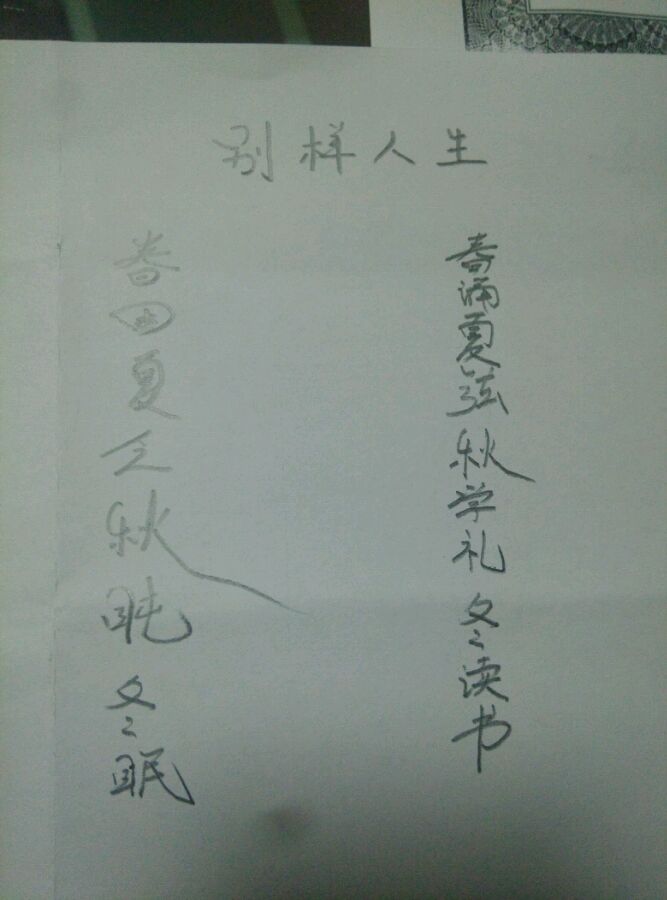 别样人生
春诵夏弦秋学礼冬读书
春困夏乏秋盹冬眠